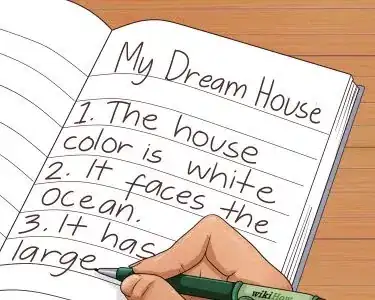 My Dream House
1. The house
color is white
2. It faces the
ocean.
3. It has
large
wikiHow